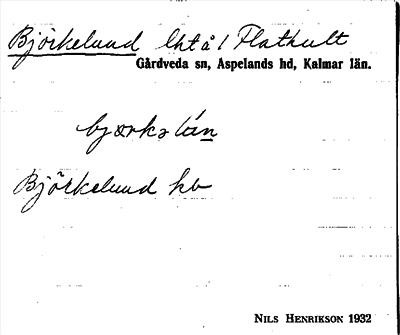 Björkelund lht å 1 Flathult
Gårdveda sn, Aspelands hd, Kalmar län.
Björkelund hb
NILS HENRIKSON 1932